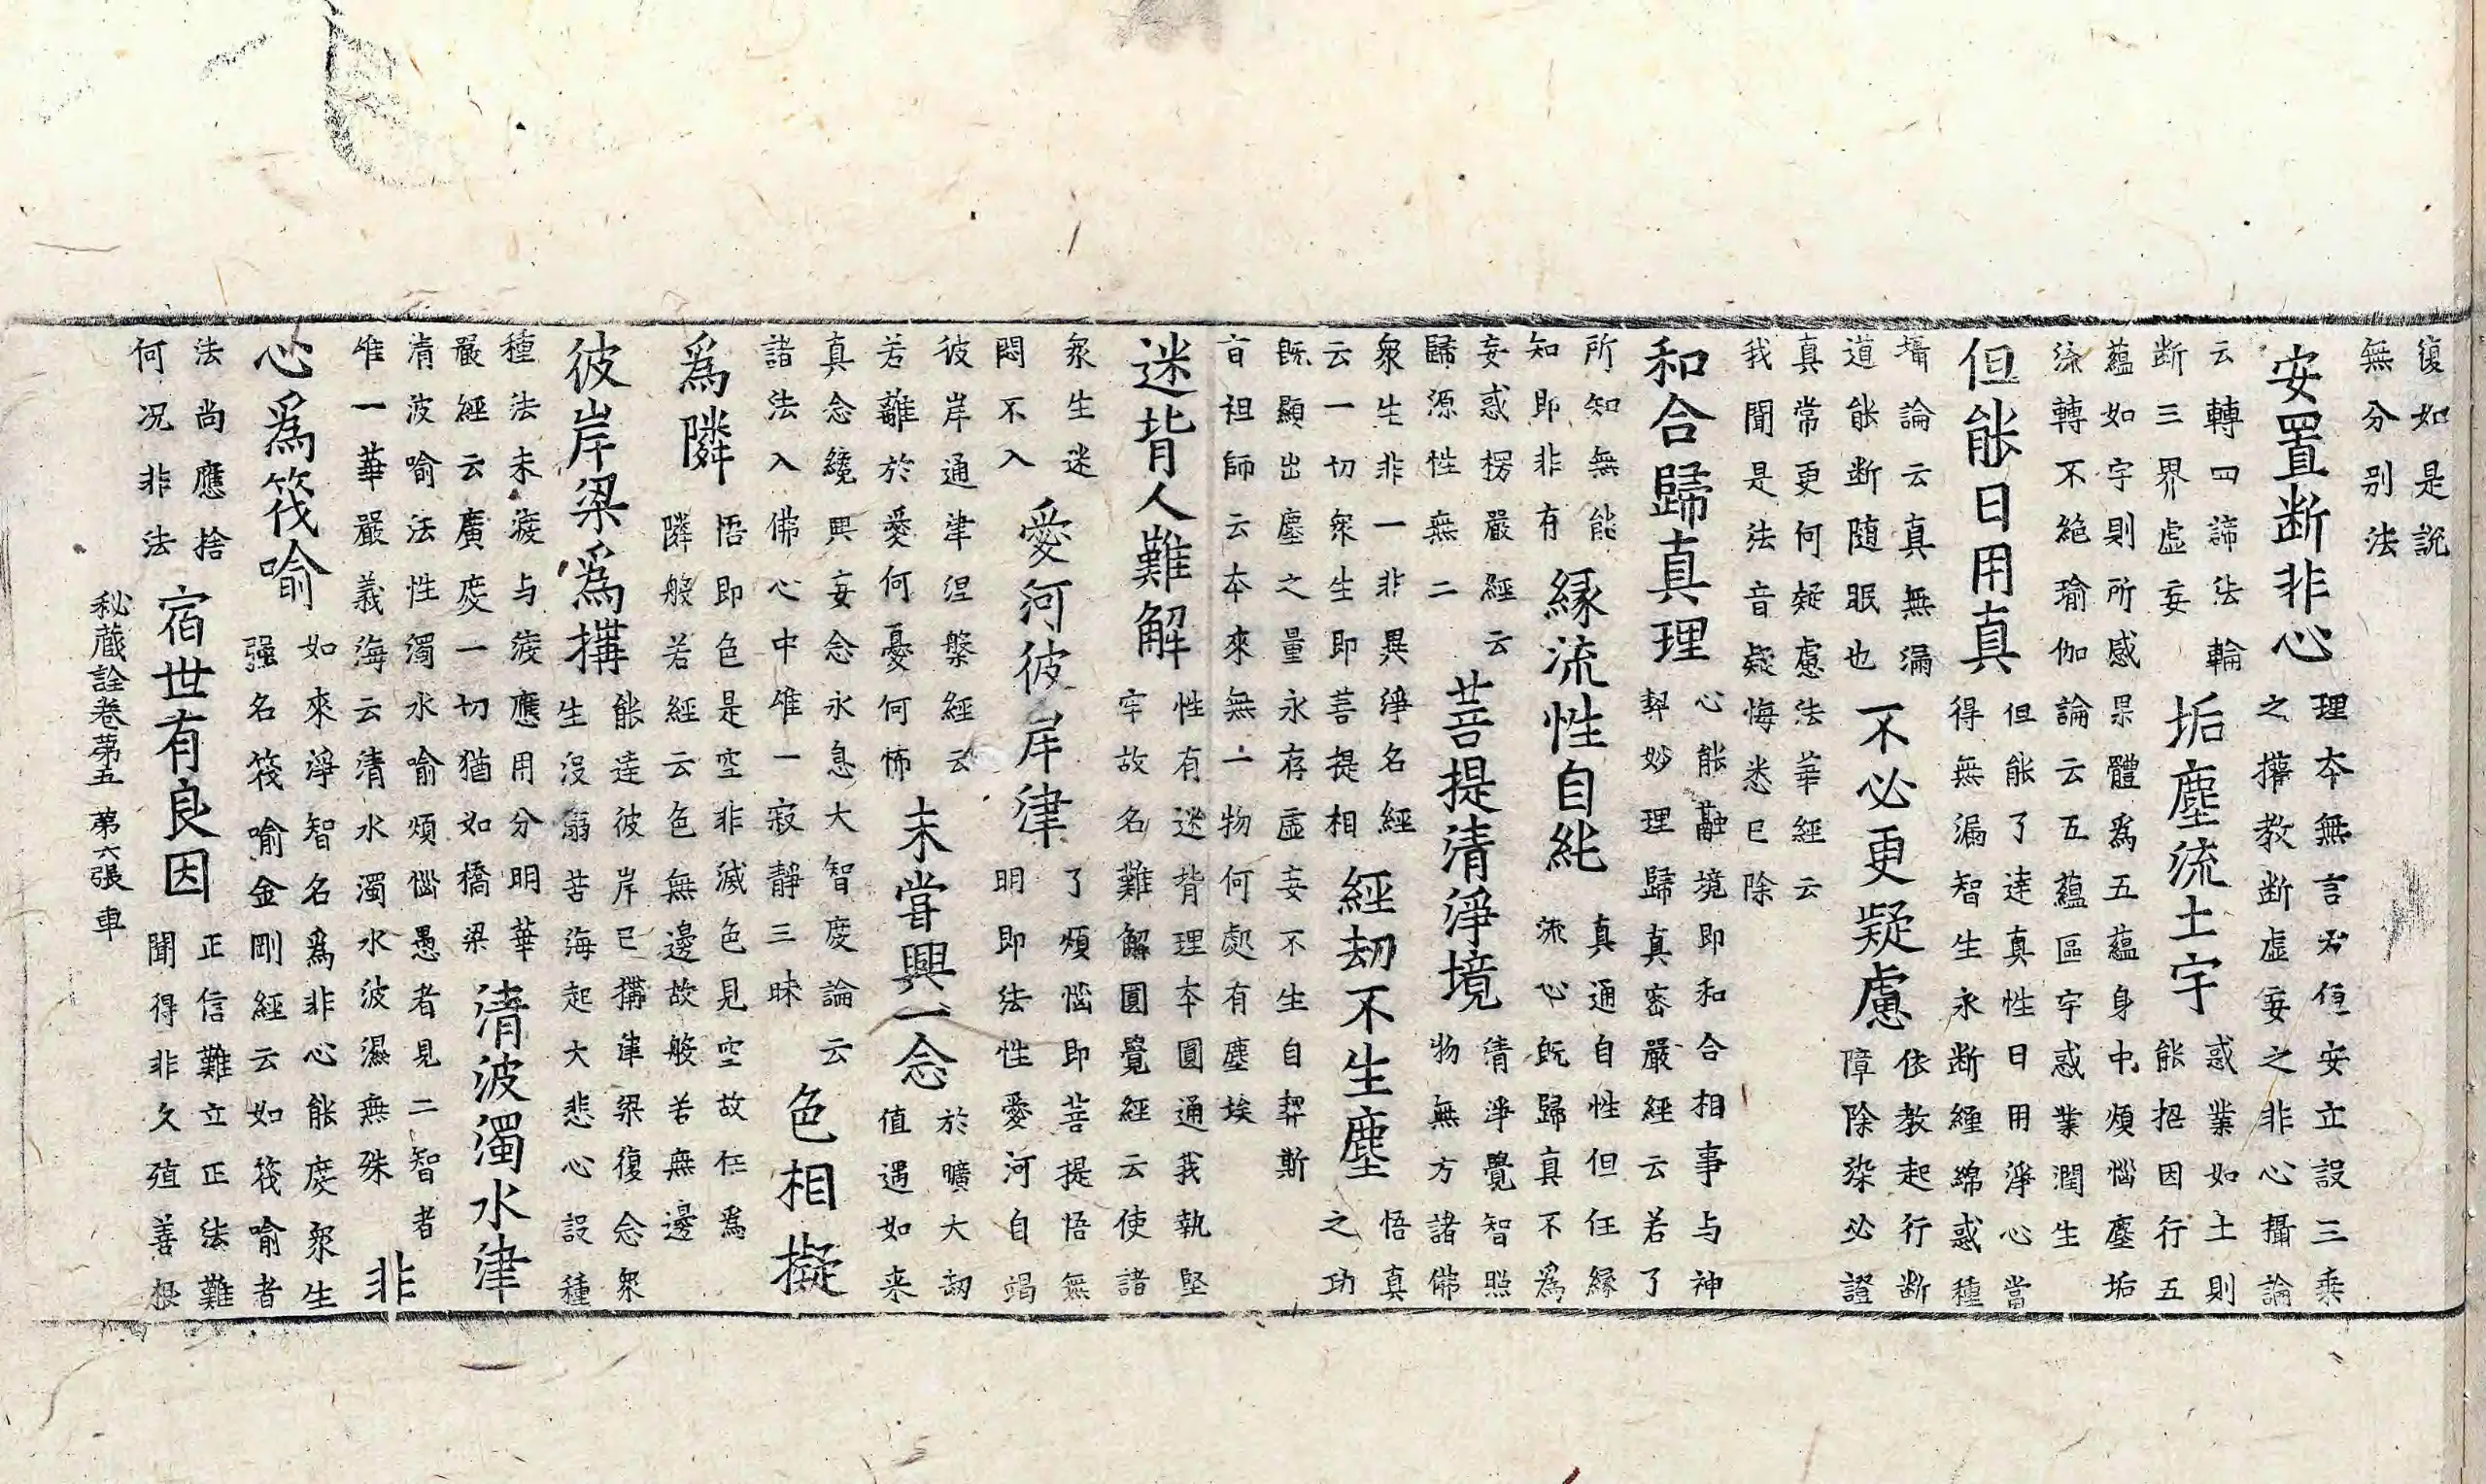 復如是說
無分別法
安置断非心
理本無言方便安立設三乘
之權教断虛妄之非心攝論
云轉四諦法輪
断三界虛妄
垢塵流土宇
惑業如土則
能招因行五
蘊如宇則所感果體為五蘊身中煩惱塵垢
流轉不絕瑜伽論云五蘊區宇惑業潤生
但能日用真
但能了達真性日用淨心當
得無漏智生永断纏綿惑種
攝論云真無漏
道能断随眠也
不必更疑慮
依教起行断
障除染必證
真常更何疑慮法華經云
我聞是法音疑悔悉已除
和合歸真理
心能融境即和合相事与神
契妙理歸真密嚴經云若了
所知無能
知即非有
緣流性自能
真通自性但任緣
流心既歸真不為
妄惑楞嚴經云
歸源性無二
菩提清淨境
清淨覺智照
物無方諸佛
衆生非一非異淨名經
云一切衆生即菩提相
經劫不生塵
悟真
之功
既顯出塵之量永存虛妄不生自契斯
旨祖師云本來無一物何處有塵埃
迷背人難解
性有迷背理本圓通我執堅
牢故名難解圓覺經云使諸
衆生迷
悶不入
愛河彼岸津
了煩惱即菩提悟無
明即法性愛河自竭
彼岸通津涅槃經云
若離於愛何憂何怖
未甞興一念
於曠大劫
值遇如来
真念纔興妄念永息大智度論云
諸法入佛心中唯一寂靜三昧
色相擬
爲隣
悟即色是空非滅色見空故任爲
隣般若經云色無邊故般若無邊
彼岸梁爲搆
能達彼岸已搆津梁復念衆
生沒溺苦海起大悲心設種
種法未疲与疲應用分明華
嚴經云廣度一切猶如橋梁
清波濁水津
清波喻法性濁水喻煩惱愚者見二智者
唯一華嚴義海云清水濁水波濕無殊
非
心爲筏喻
如來淨智名爲非心能度衆生
强名筏喻金剛經云如筏喻者
法尚應捨
何况非法
宿世有良因
正信難立正法難
聞得非久殖善根
秘藏詮卷第五 第六張 車